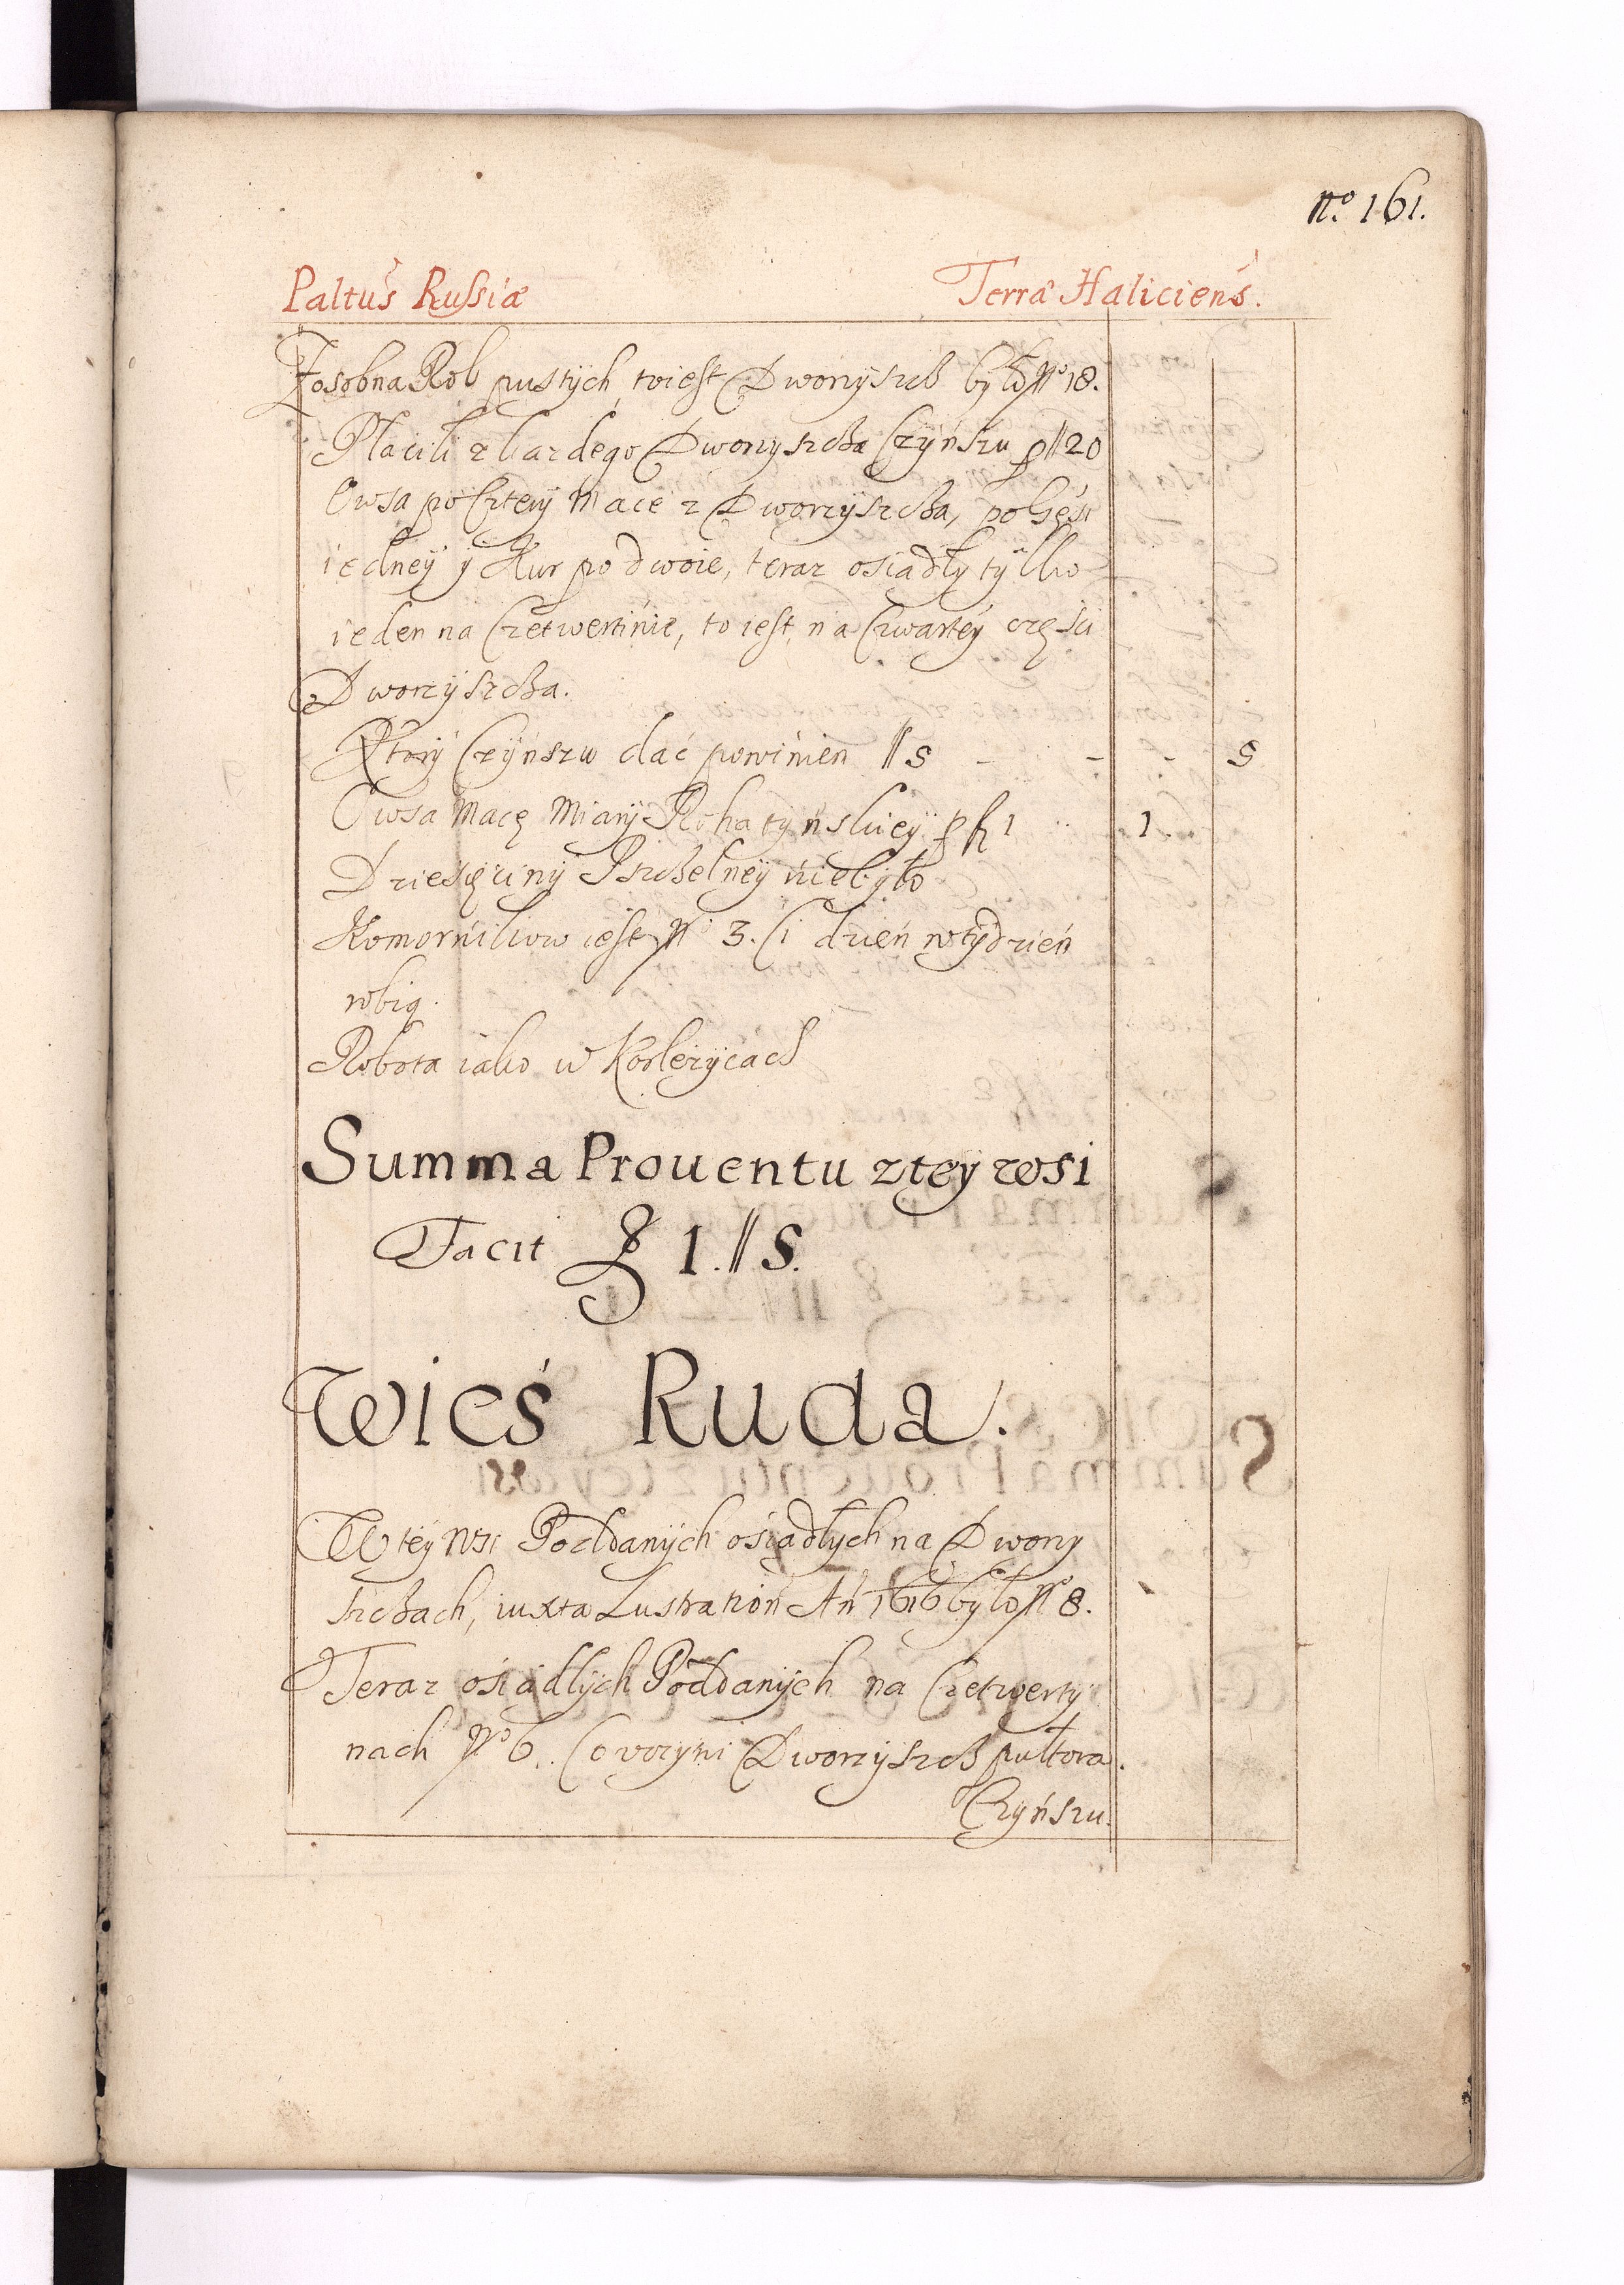 No. 161.
Paltus Russiæ Terræ Haliciens.
Zosobna Rol pustÿch, toiest Dworzÿszcz bÿło No 18.
Płacili z kazdego Dworzyszcza Czÿnszu p // 20
Owsa po Czterÿ Mace z Dworzÿszcza, po Gęsi
iedneÿ ÿ Kur po dwoie, teraz osiadłÿ tÿlko
ieden na Czetwertinie, to iest, na Czwarteÿ części
Dworzÿszcza.
Ktorÿ Czÿnszu dać powinien // 5 - - - 5
Owsa Macę Miarÿ Rohatÿnskieÿ p fl 1 1.
Dziesięcinÿ Pszczelneÿ niebÿło
Kornornikow iest No 3. Ci dzień w tÿdzień
robią.
Robota iako w
Summa Prouentu z teÿ wsi
Facit 1. // 5.
Wieś Ruda.
W teÿ wsi Poddanÿch osiadłÿch na Dworzy
szczach, iuxta Lustration An 1616 bÿło No 8.
Teraz osiadłÿch Poddanÿch na Czetwerty
nach No 6. Co vczyni Dworzÿszcz pułtora.
Czÿnszu.